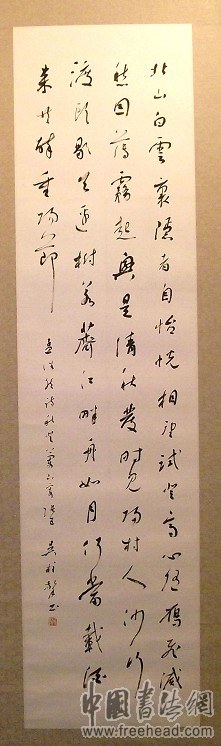 北山白雲裏隱者自怡悅相望試登高心隨鴈飛滅
愁因薄霧起興是清秋發时見歸村人沙行
渡頭歇天邊樹若薺江畔舟如月何當載酒
來共醉重陽節
孟浩然詩秋登萬山寄張五 吳書
中國書法網
www.freehead.com